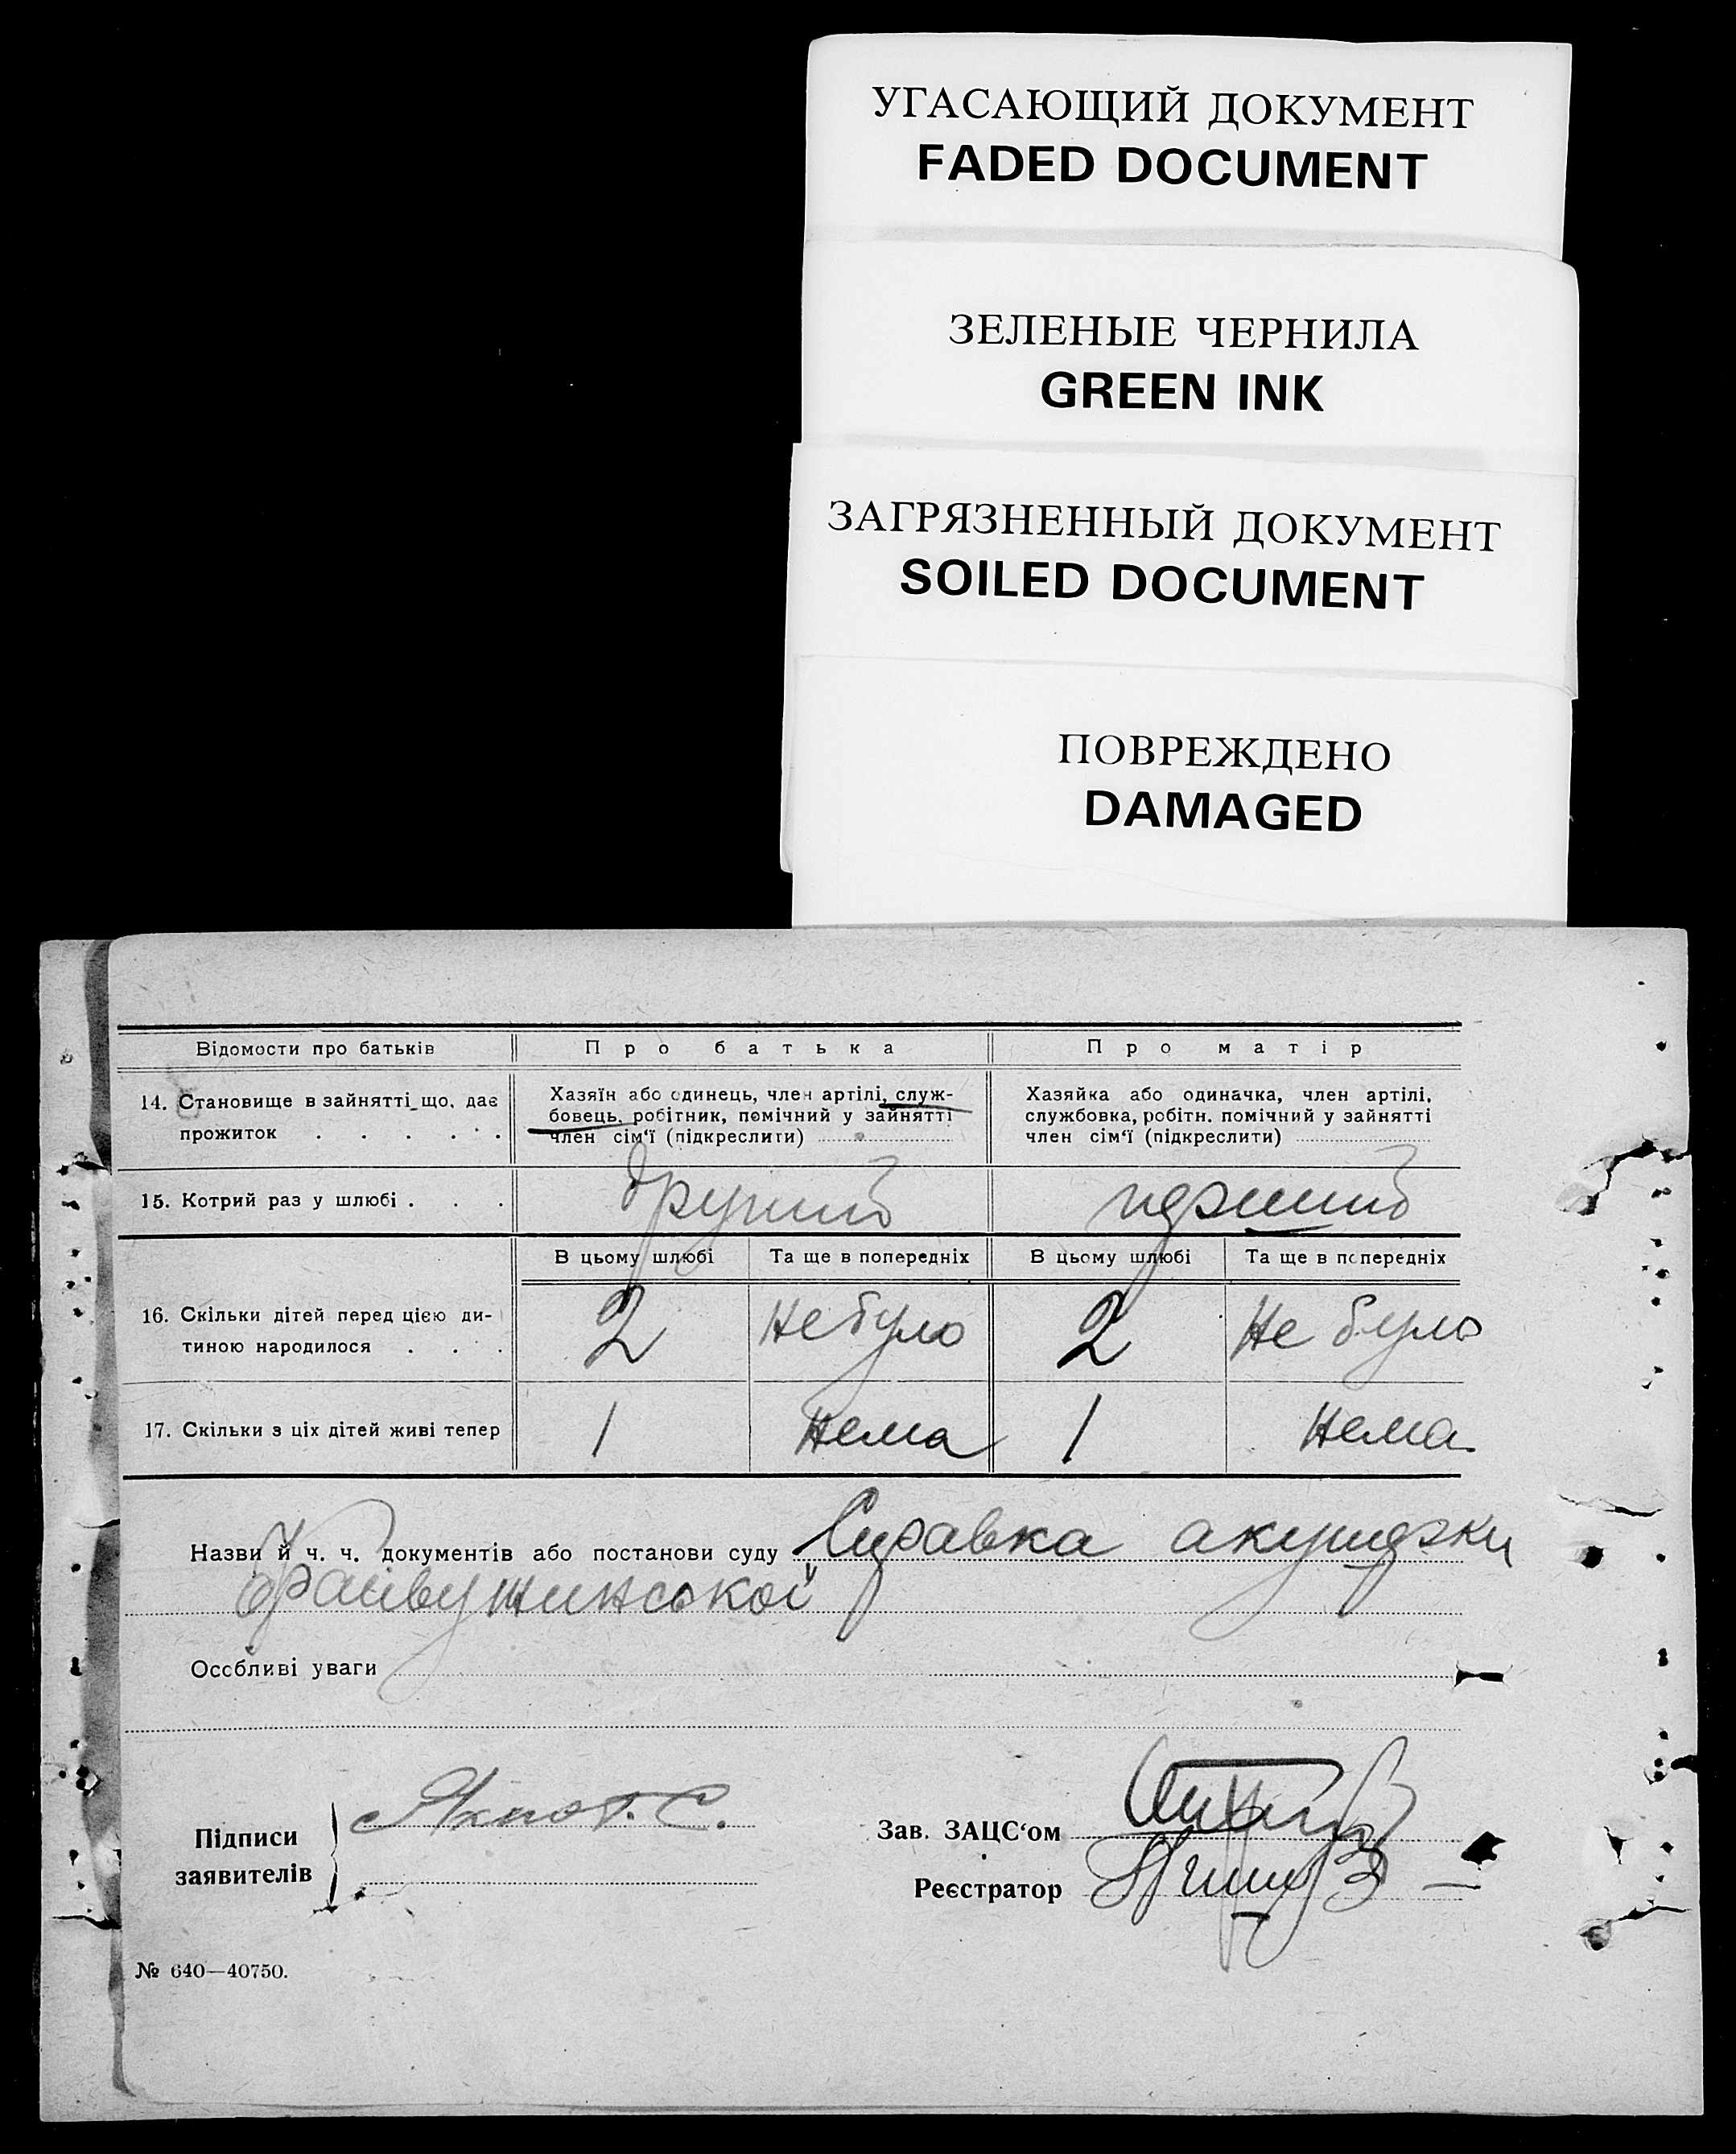 УГАСАЮЩИЙ ДОКУМЕНТ
FADED DOCUMENT
ЗЕЛЕНЫЕ ЧЕРНИЛА
GREEN INK
ЗАГРЯЗНЕННЫЙ ДОКУМЕНТ
SOILED DOCUMENT
ПОВРЕЖДЕНО
DAMAGED
Відомости про батьків Про батька Про матір
14. Становище в зайнятті що, дає прожиток . . . . . .
Хазяїн або одинець, член артілі, служ-
бовець, робітник, помічний у зайнятті
член сім'ї (підкреслити)
Хазяйка або одиначка, член артілі,
службовка, робітн. помічний у зайнятті
член сім'ї (підкреслити)
15. Котрий раз у шлюбі . . . другий перший
В цьому шлюбі Та ще в попередніх В цьому шлюбі Та ще в попередніх
16. Скільки дітей перед цією ди-
тиною народилося . . . 2 не було 2 не було
17. Скільки з ціх дітей живі тепер 1 нема 1 нема
Назви й ч. ч. документів або постанови суду Справка акушерки
Особливі уваги
Підписи
заявителів
Зав. ЗАЦС'ом
Реєстратор
№ 640—40750.